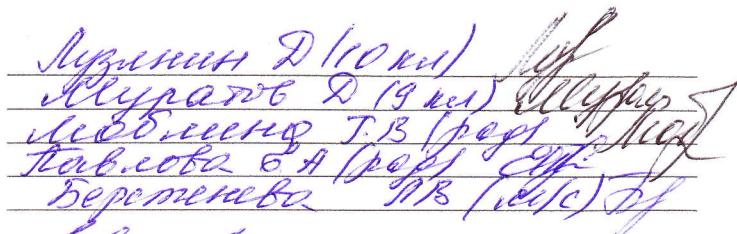 Лузянин Д (10 кл)
Муратов Д (9 кл)
Люблина Г.В (род)
Павлова Е А (род)
Береженева ЛВ (м/с)